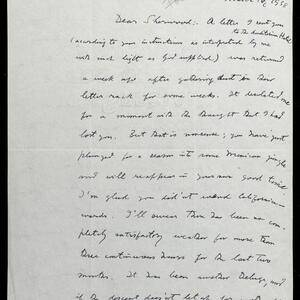 1938
Dear Sherwood: A letter I sent you
to the Auditorium Hotel
(according to your instructions as interpreted by me
with such light as God supplied) was returned
a week ago after gathering dust in their
letter rack for some weeks. It desolated me
for a moment with the thought that I had
lost you. But that is nonsense; you have just
plunged for a season into some Mexican jungle
and will reappear in your own good time.
I'm glad you didn't wend California-
wards. I'll swear there has been no com-
pletely satisfactory weather for more than
three continuous hours for the last two
months. It has been another Deluge, and
if the descent doesn't let up